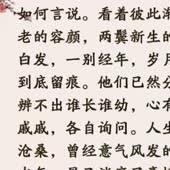 如何言说。看着彼此渐
老的容颜，两鬓新生的
白发，一别经年，岁月
到底留痕。他们已然分
辨不出谁长谁幼，心有
戚戚，各自询问。人生
沧桑，曾经意气风发的